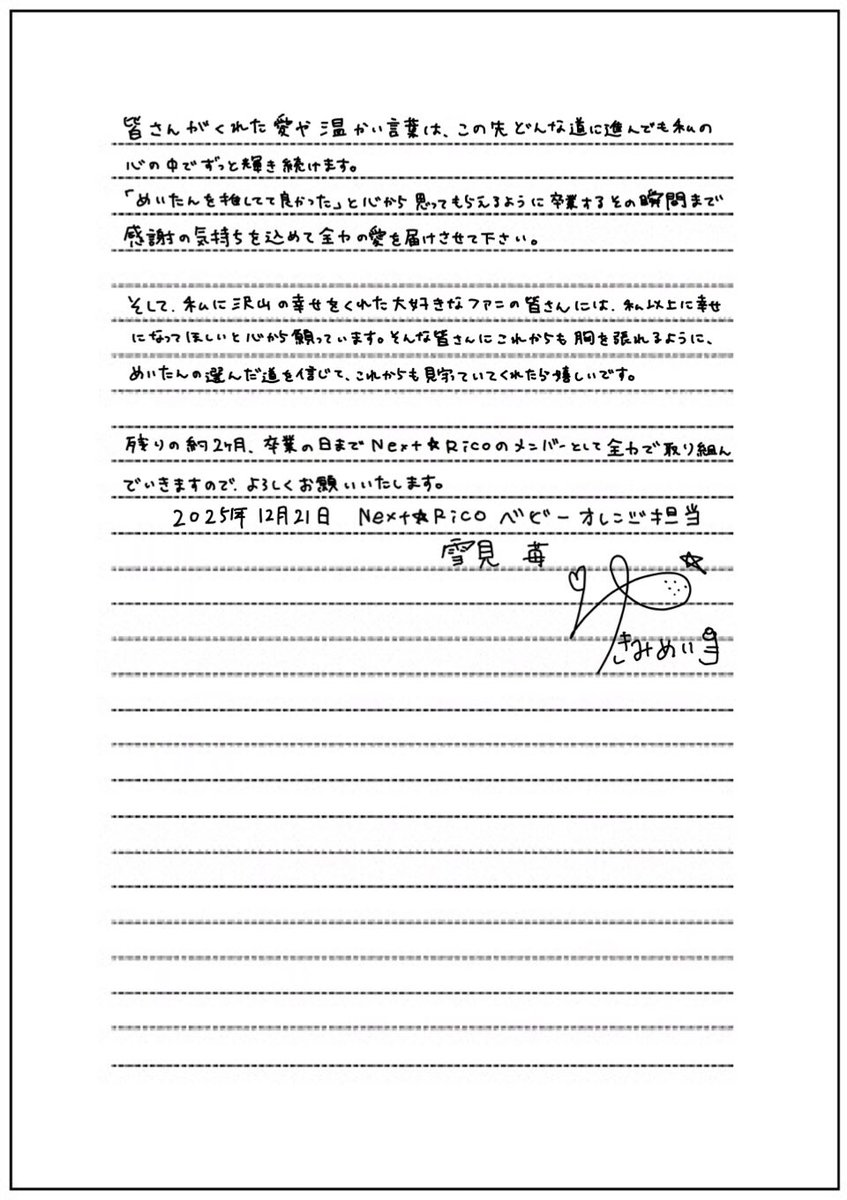 皆さんがくれた愛や温かい言葉は、この先どんな道に進んでも私の
心の中でずっと輝き続けます。
「めいたんを推してて良かった」と心から思ってもらえるように卒業するその瞬間まで
感謝の気持ちを込めて全力の愛を届けさせて下さい。
そして、私に沢山の幸せをくれた大好きなファンの皆さんには、私以上に幸せ
になってほしいと心から願っています。そんな皆さんにこれからも胸を張れるように、
めいたんの選んだ道を信じて、これからも見守っていてくれたら嬉しいです。
残りの約2ヶ月、卒業の日までNext☆Ricoのメンバーとして全力で取り組ん
でいきますので、よろしくお願いいたします。
2025年12月21日 Next☆Rico ベビーオレンジ担当
雪見 苺
ゆ
きみめい